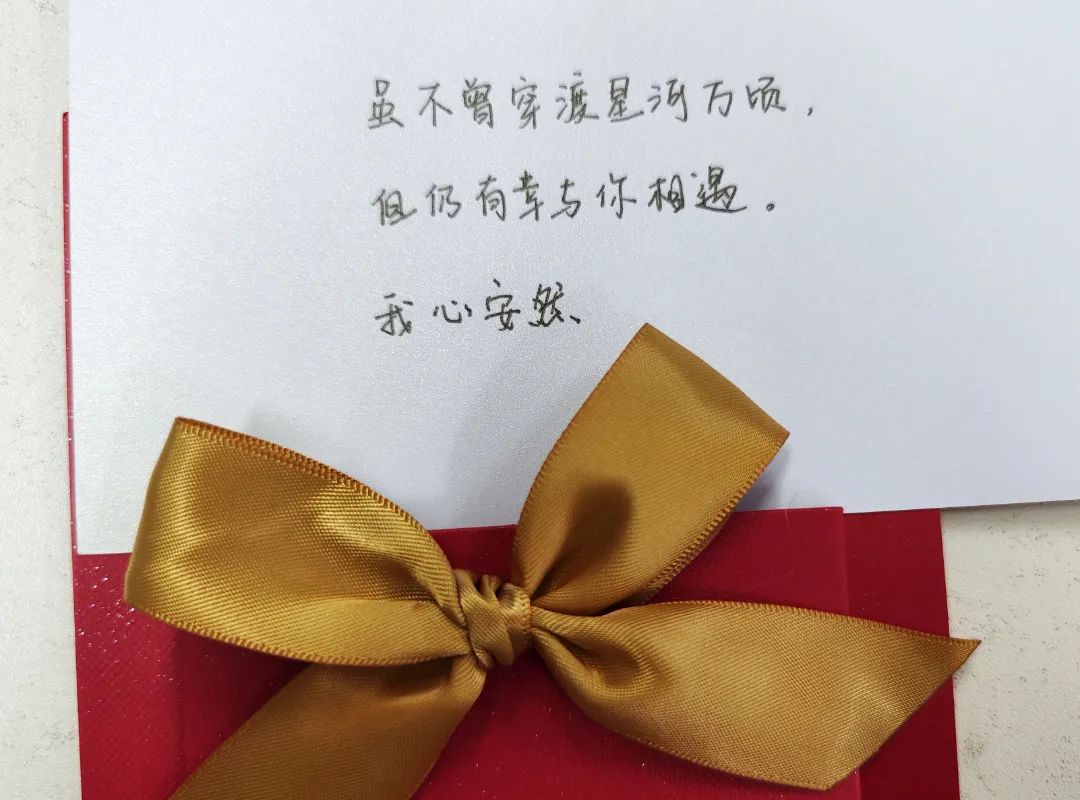 虽不曾穿渡星河万顷，
但仍有幸与你相遇。
我心安然、